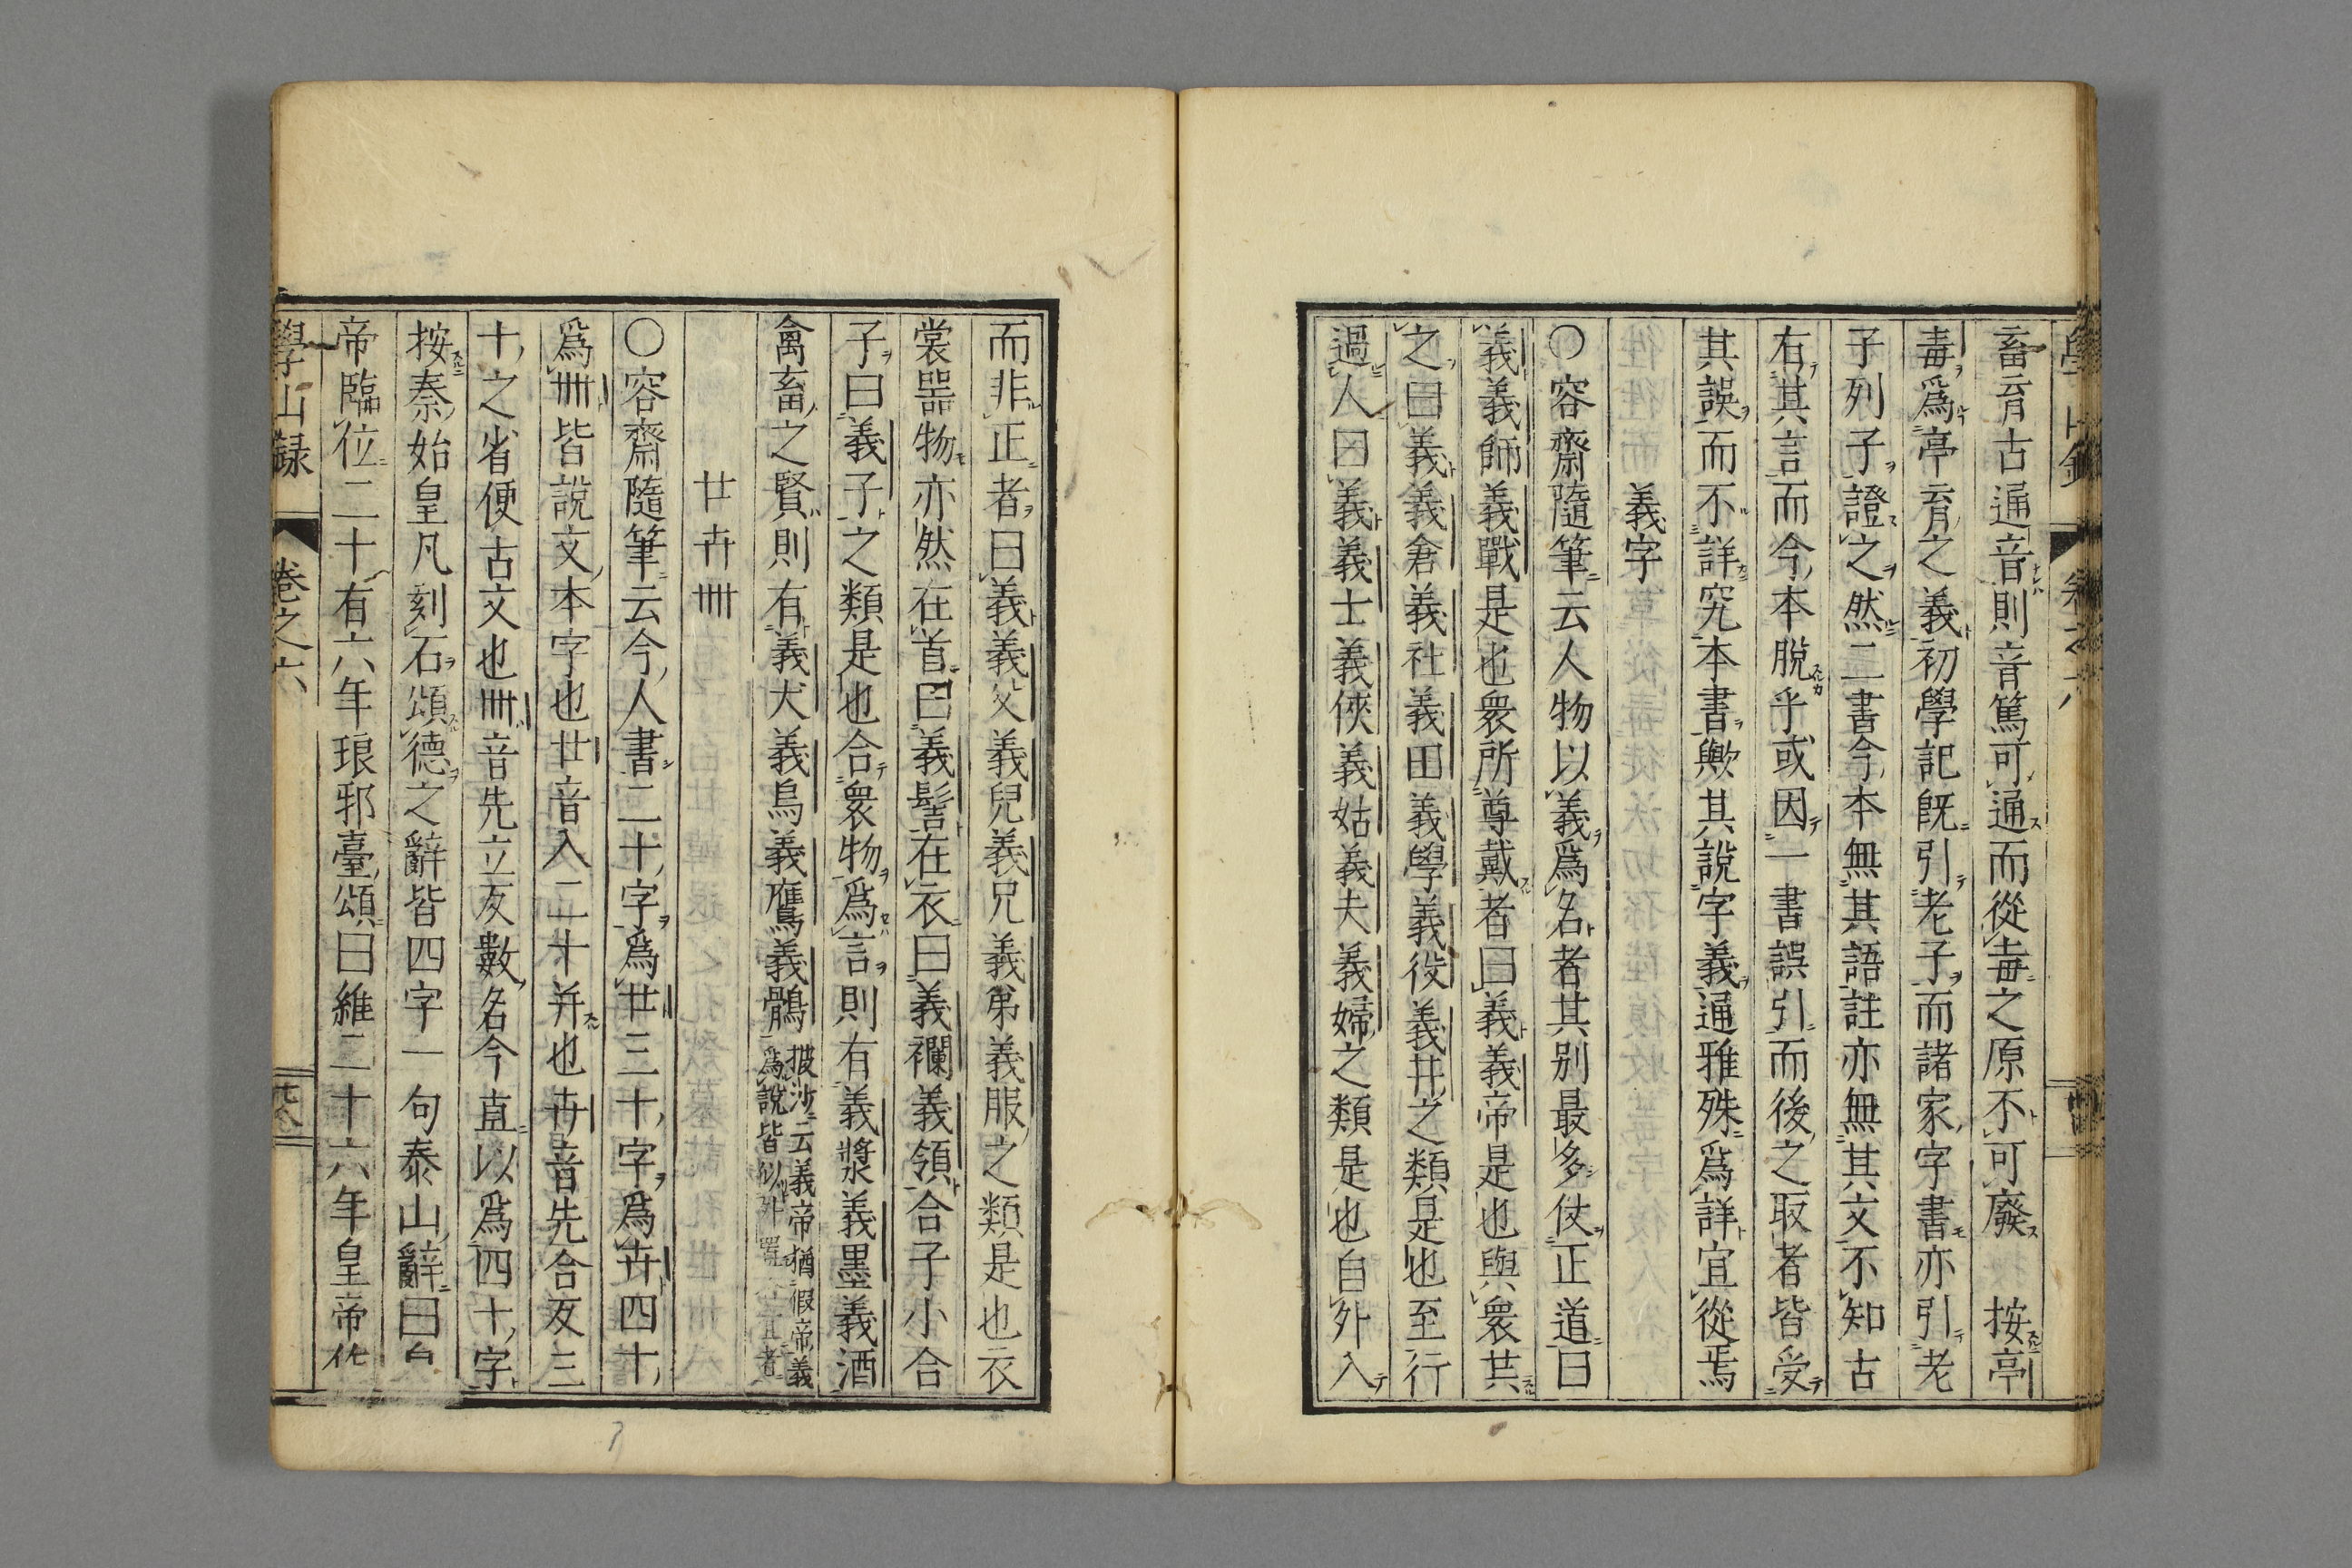 畜育古通音則音篤可通而從毒之原不可廢　按亭
毒爲亭育之義初學記既引老子而諸家字書亦引老
子列子證之然二書今本無其語註亦無其文不知古
有其言而今本脫乎或因一書誤引而後之取者皆受
其誤而不詳究本書歟其說字義通雅殊爲詳宜從焉
義字
○容齋隨筆云人物以義爲名者其別最多仗正道曰
義義師義戰是也衆所尊戴者曰義義帝是也與衆共
之曰義義倉義社義田義學義役義井之類是也至行
過人曰義義士義俠義姑義夫義婦之類是也自外入
而非正者曰義義父義兒義兄義弟義服之類是也衣
裳器物亦然在首曰義髻在衣曰義襴義領合子小合
子曰義子之類是也合衆物爲言則有義漿義墨義酒
禽畜之賢則有義犬義烏義鷹義鶻
披沙云義帝猶假帝義
爲說皆似外置者
廿卅卌
○容齋隨筆云今人書二十字爲廿三十字爲卅四十
爲卌皆說文本字也廿音入二十并也卅音先合反三
十之省便古文也卌音先立反數名今直以爲四十字
按秦始皇凡刻石頌德之辭皆四字一句泰山辭曰皇
帝臨位二十有六年琅邪臺頌曰維二十六年皇帝作
學山録　卷之六